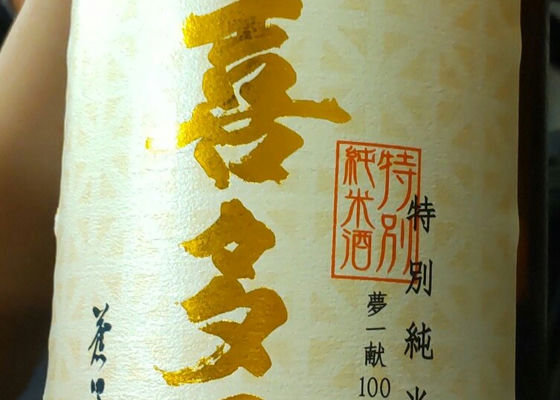 特別純米
特別
純米酒
夢一献
100
喜多